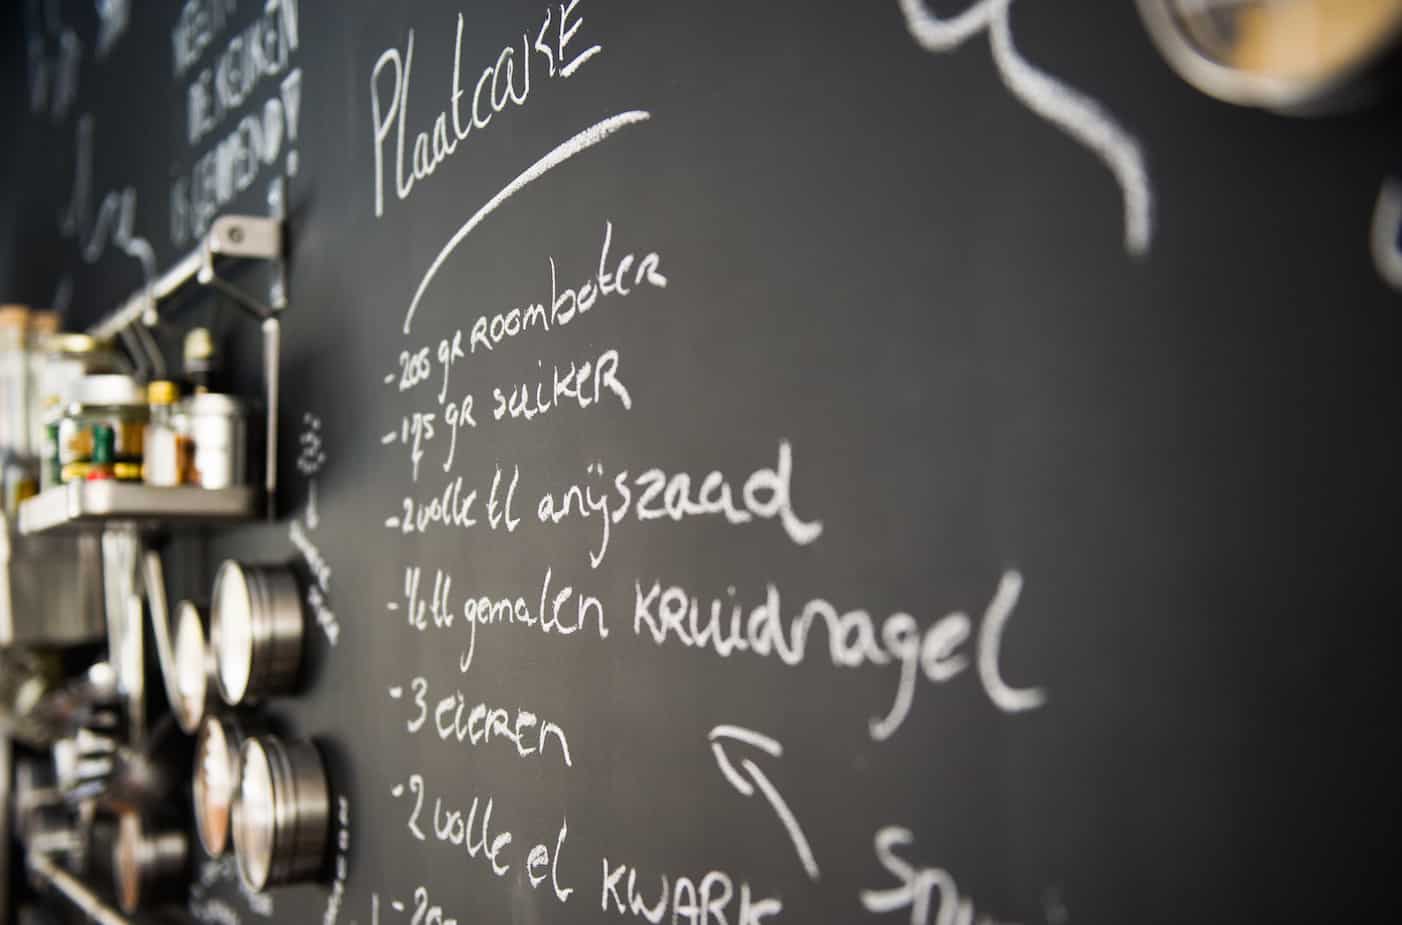 PlaatcaKE
- 200 gr roomboter
- 175 gr suiker
- 2 volle tl anijszaad
- 1/2 tl gemalen KRuidnagel
- 3 eieren
- 2 volle el KWARK